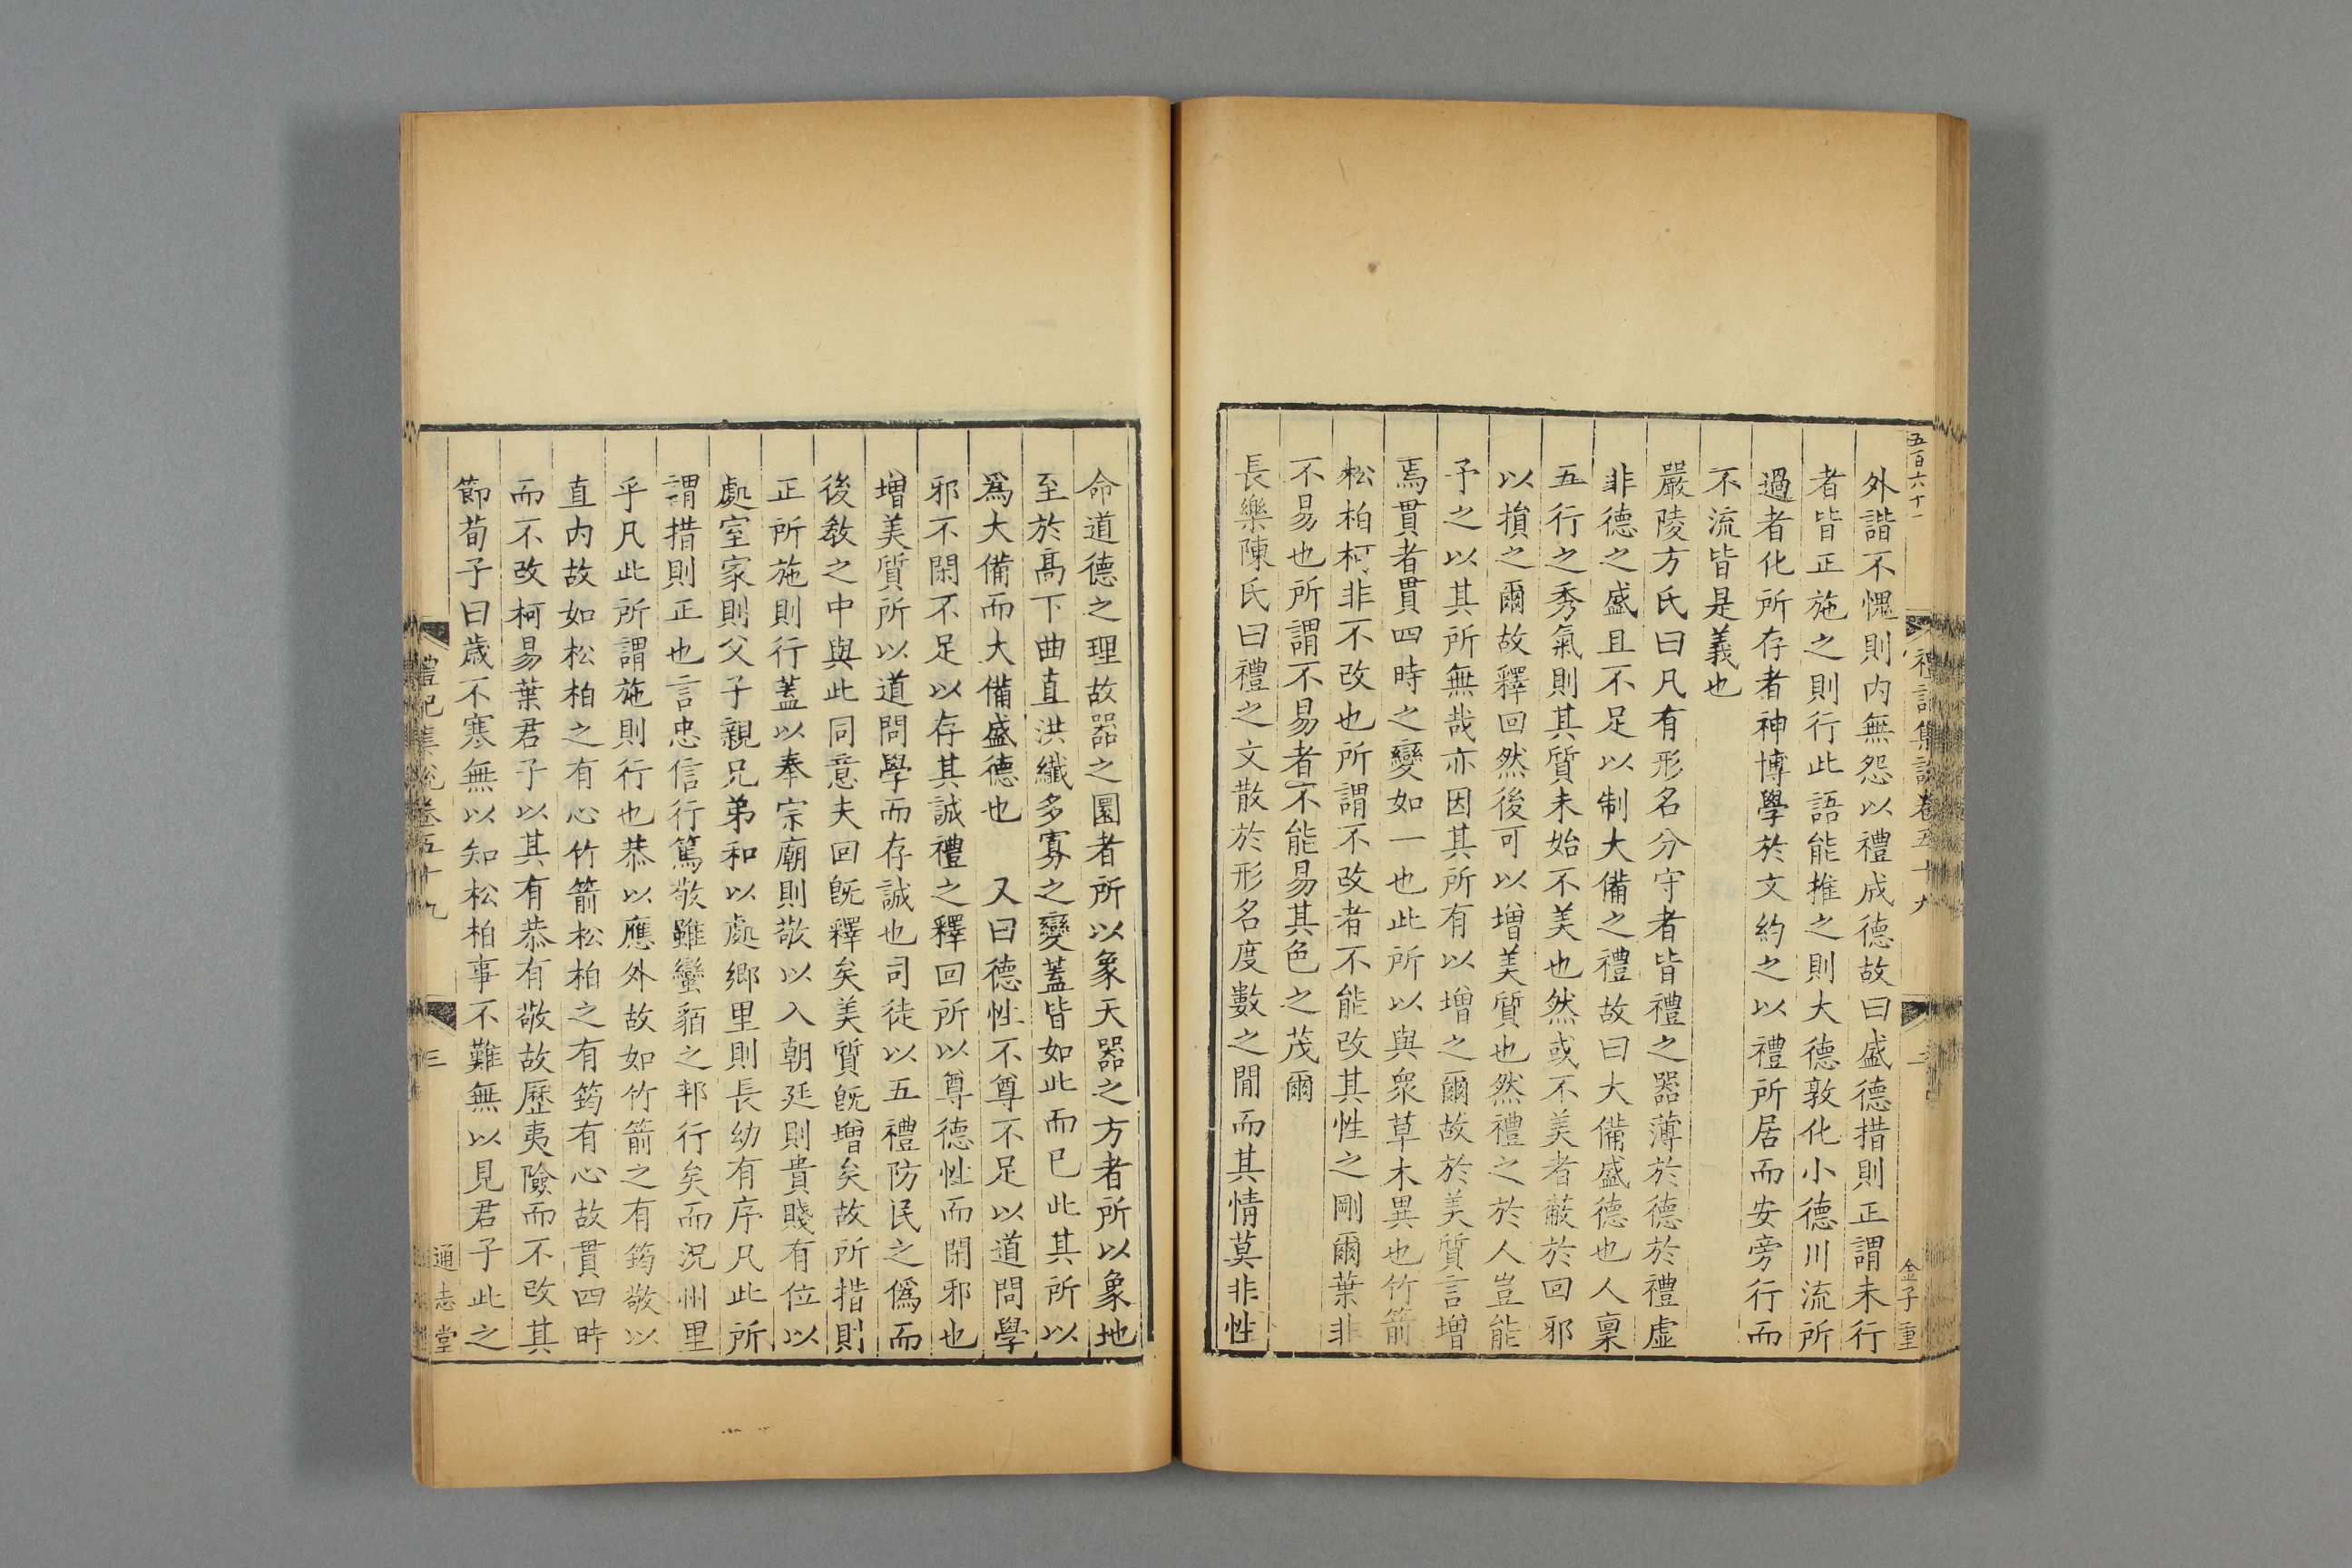 五百六十一
禮記集說卷五十九
二
金子重
外諧不愧則内無怨以禮成德故曰盛德措則正謂未行
者皆正施之則行此語能推之則大德敦化小德川流所
過者化所存者神博學於文約之以禮所居而安旁行而
不流皆是義也
嚴陵方氏曰凡有形名分守者皆禮之器薄於德於禮虚
非德之盛且不足以制大備之禮故曰大備盛德也人稟
五行之秀氣則其質未始不美也然或不美者蔽於回邪
以損之爾故釋回然後可以增美質也然禮之於人豈能
予之以其所無哉亦因其所有以增之爾故於美質言增
焉貫者貫四時之變如一也此所以與衆草木異也竹箭
松柏柯非不改也所謂不改者不能改其性之剛爾葉非
不易也所謂不易者不能易其色之茂爾
長樂陳氏曰禮之文散於形名度數之閒而其情莫非性
命道德之理故器之圜者所以象天器之方者所以象地
至於高下曲直洪纖多寡之變蓋皆如此而已此其所以
爲大備而大備盛德也　又曰德性不尊不足以道問學
邪不閑不足以存其誠禮之釋回所以尊德性而閑邪也
増美質所以道問學而存誠也司徒以五禮防民之僞而
後教之中與此同意夫回旣釋矣美質旣増矣故所措則
正所施則行蓋以奉宗廟則敬以入朝廷則貴賤有位以
處室家則父子親兄弟和以處鄉里則長幼有序凡此所
謂措則正也言忠信行篤敬雖蠻貊之邦行矣而況州里
乎凡此所謂施則行也恭以應外故如竹箭之有筠敬以
直内故如松柏之有心竹箭松柏之有筠有心故貫四時
而不改柯易葉君子以其有恭有敬故歷夷險而不改其
節荀子曰歲不寒無以知松柏事不難無以見君子此之
禮記集說卷五十九
三
通志堂